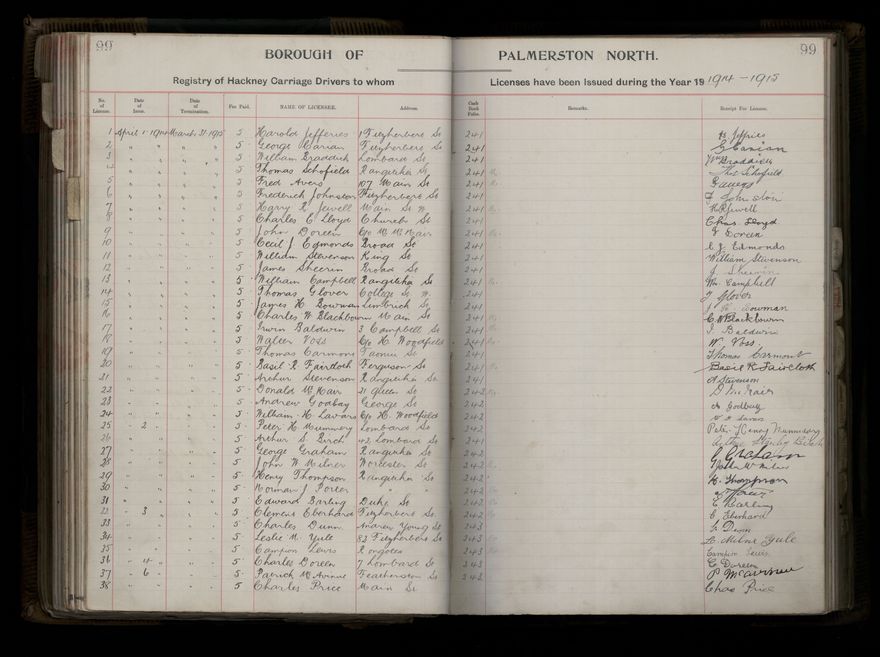 99 BOROUGH OF PALMERSTON NORTH. 99
Registry of Hackney Carriage Drivers to whom Licenses have been Issued during the Year 19 1914-1915
No. of License. Date of Issue. Date of Termination. Fee Paid. NAME OF LICENSEE. Address. Cash Book Folio. Remarks. Receipt For License.
1 April 1 1914 March 31 1915 5 Harold Jefferies 1 Fitzherbert St 241 H Jeffries
2 " " " " 5 George Carian Fitzherbert St 241 G Carian
3 " " " " 5 William Braddick Lombard St 241 Wm Braddick
" " " " 5 Thomas Schofield Rangitika St 241 Thos Schofield
5 " " " " 5 Fred Avers 107 Main St 241
6 " " " " 5 Frederick Johnston Fitzherbert St 241 F Johnston
7 " " " " 5 Harry R Jewell Main St W 241 H R Jewell
8 " " " " 5 Charles E Lloyd Church St 241 Chas Lloyd
9 " " " " 5 John Doreen C/o 241 J Doreen
10 " " " " 5 Cecil J Edmonds Broad St 241 C J Edmonds
11 " " " " 5 William Stevenson King St 241 William Stevenson
12 " " " " 5 James Sheerin Broad St 241 J
13 " " " " 5 William Campbell Rangitika St 241 Wm Campbell
14 " " " " 5 Thomas Glover College St W 241 T Glover
15 " " " " 5 James H Bowman Limbrick St 241 Bowman
16 " " " " 5 Charles W Blackbourn Main St 241 C W Blackbourn
17 " " " " 5 Irwin Baldwin 3 Campbell St 241 I Baldwin
18 " " " " 5 Walter Voss C/o H. Woodfield 241 W Voss
19 " " " " 5 Thomas Carmont Taonui St 241 Thomas Carmont
20 " " " " 5 Basil R Faircloth Ferguson St 241 Basil R Faircloth
21 " " " " 5 Arthur Stevenson Rangitika St 241 A Stevenson
22 " " " " 5 Donald McNair 31 Queen St 242 D McNair
23 " " " " 5 Andrew Godbay George St 242 A
24 " " " " 5 William H Lavars C/o H. Woodfield 242
25 " 2 " " 5 Peter H Mummory Lombard St 242 Peter Henry
26 " " " " 5 Arthur S Birch 42 Lombard St 241 Arthur Birch
27 " " " " 5 George Graham Rangitika St 242 G Graham
28 " " " " 5 John W Milner Worcester St 242
29 " " " " 5 Henry Thompson Rangitika St 242 H. Thompson
30 " " " " 5 Norman J Porter " " 242
31 " " " " 5 Edward Barling Duke St 242 E Barling
32 " 3 " " 5 Clement Eberhard Fitzherbert St 242 C Eberhard
33 " " " " 5 Charles Dunn Andrew Young St 243 C Dunn
34 " " " " 5 Leslie M. Yule 82 Fitzherbert St 243 L. Milne Yule
35 " " " " 5 Campion Lewis Rongotea 243 Campion Lewis
36 " 4 " " 5 Charles Doreen 7 Lombard St 243 C Doreen
37 " 6 " " 5 Patrick McAvinue Featherston St 243 P McAvinue
38 5 Charles Price Main St Chas Price